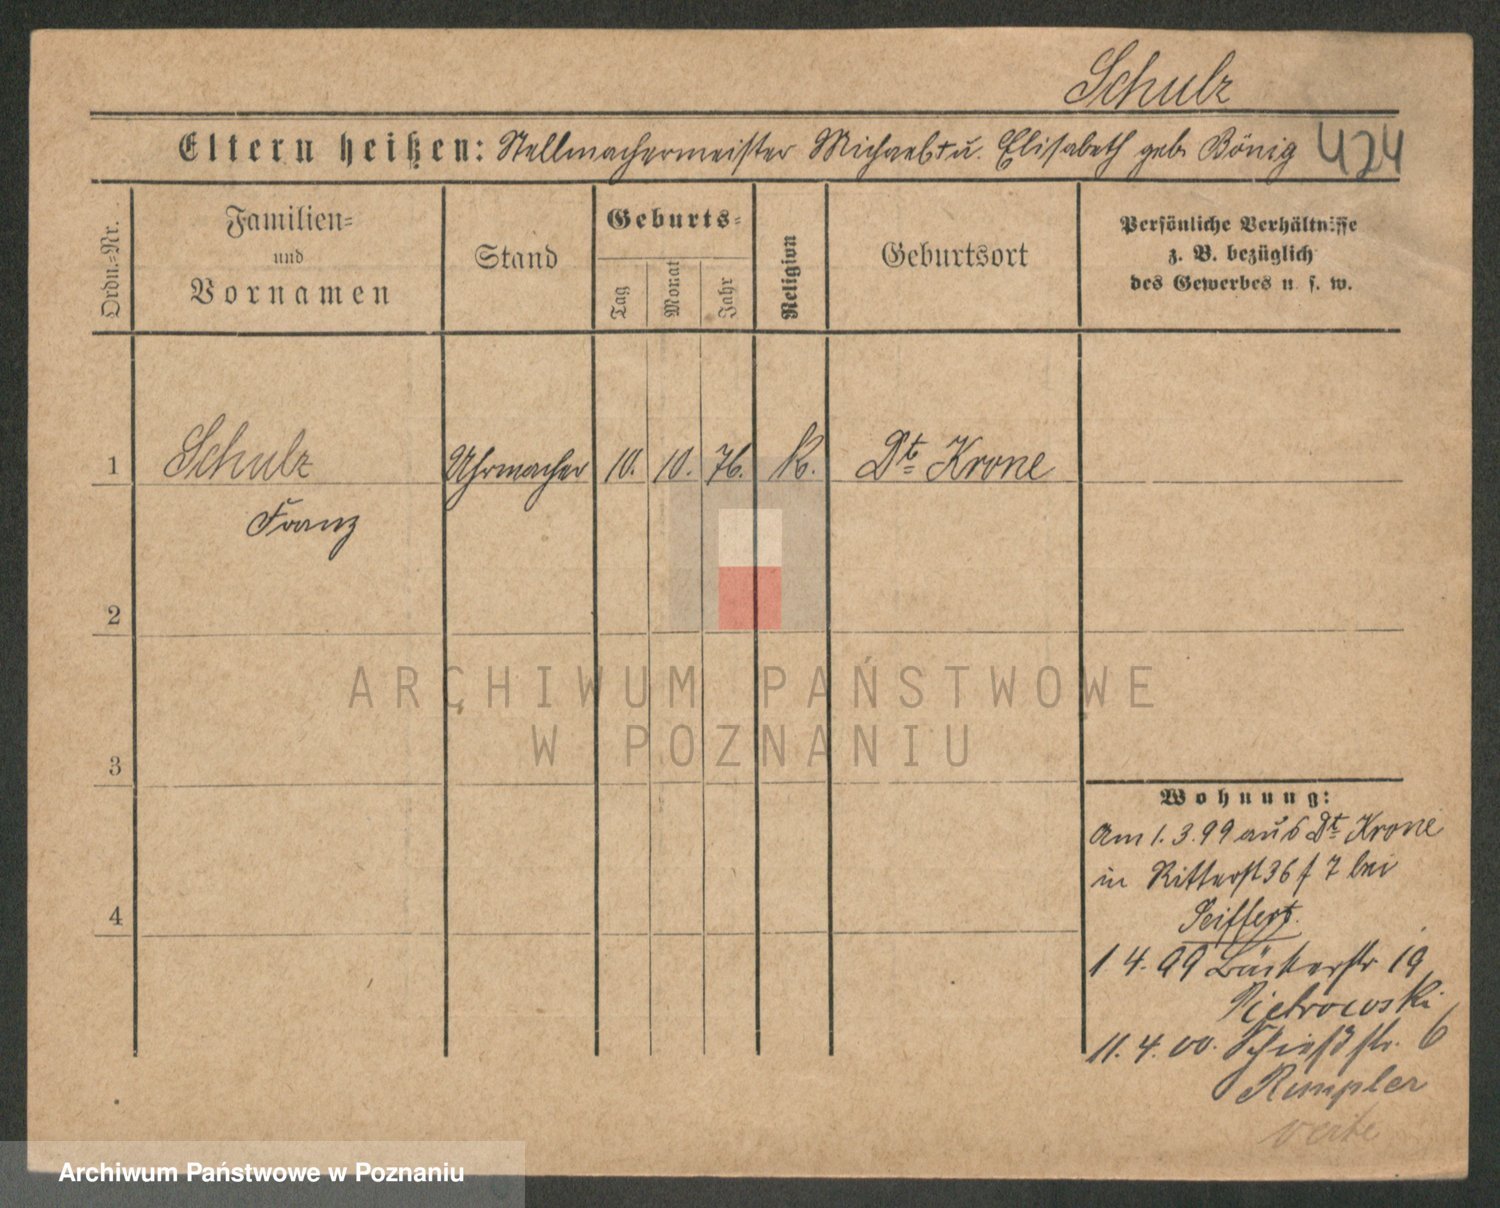 Schulz
Eltern heißen: Stellmachermeister Michael † u. Elisabeth geb. Bönig 424
Ordn.-Nr.
Familien-
und
Vornamen
Stand
Geburts-
Tag
Monat
Jahr
Religion
Geburtsort
Persönliche Verhältnisse
z. B. bezüglich
des Gewerbes u. s. w.
1 Schulz Uhrmacher 10. 10. 76. k. Dt. Krone
Franz
2
3
4
Wohnung:
Am 1. 3. 99 aus Dt. Krone
in Ritterst 36 f 7 bei
Seiffert.
1 4. 99 Bäckerstr 19
Pietrowski
11. 4. 00. Schießstr. 6
Rumpler
ARCHIWUM PAŃSTWOWE
W POZNANIU
Archiwum Państwowe w Poznaniu